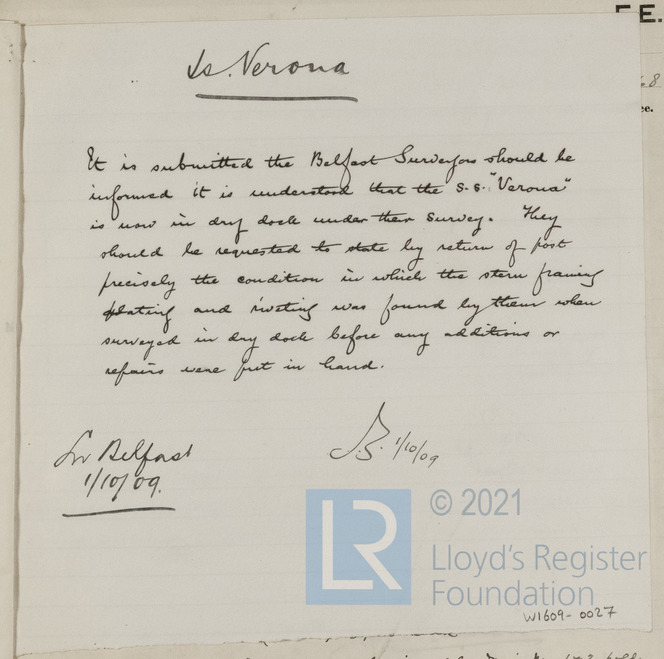 F.E.
68
ce.
Ss. Verona
It is submitted the Belfast Surveyors should be
informed it is understood that the S.S. "Verona"
is now in dry dock under their survey. They
should be requested to state by return of post
precisely the condition in which the stern framing
plating and riveting was found by them when
surveyed in dry dock before any additions or
repairs were put in hand.
Belfast
1/10/09.
1/10/09
LR
© 2021
Lloyd's Register
Foundation
W1609-0027